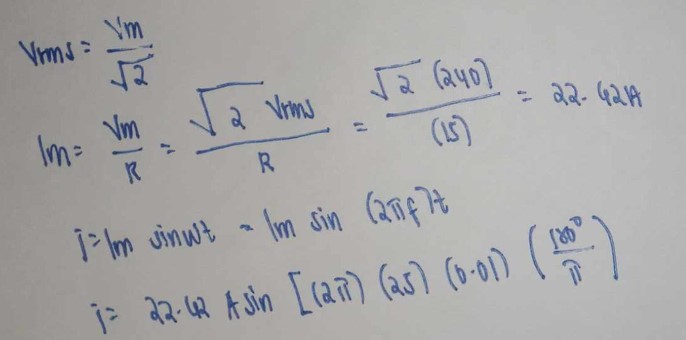 Vrms = Vm / √2
Im = Vm / R = √2 Vrms / R = √2 (240) / (15) = 22.62A
i = Im sin wt = Im sin (2πf)t
i = 22.62 A sin [(2π) (25) (0.01) (180° / π)